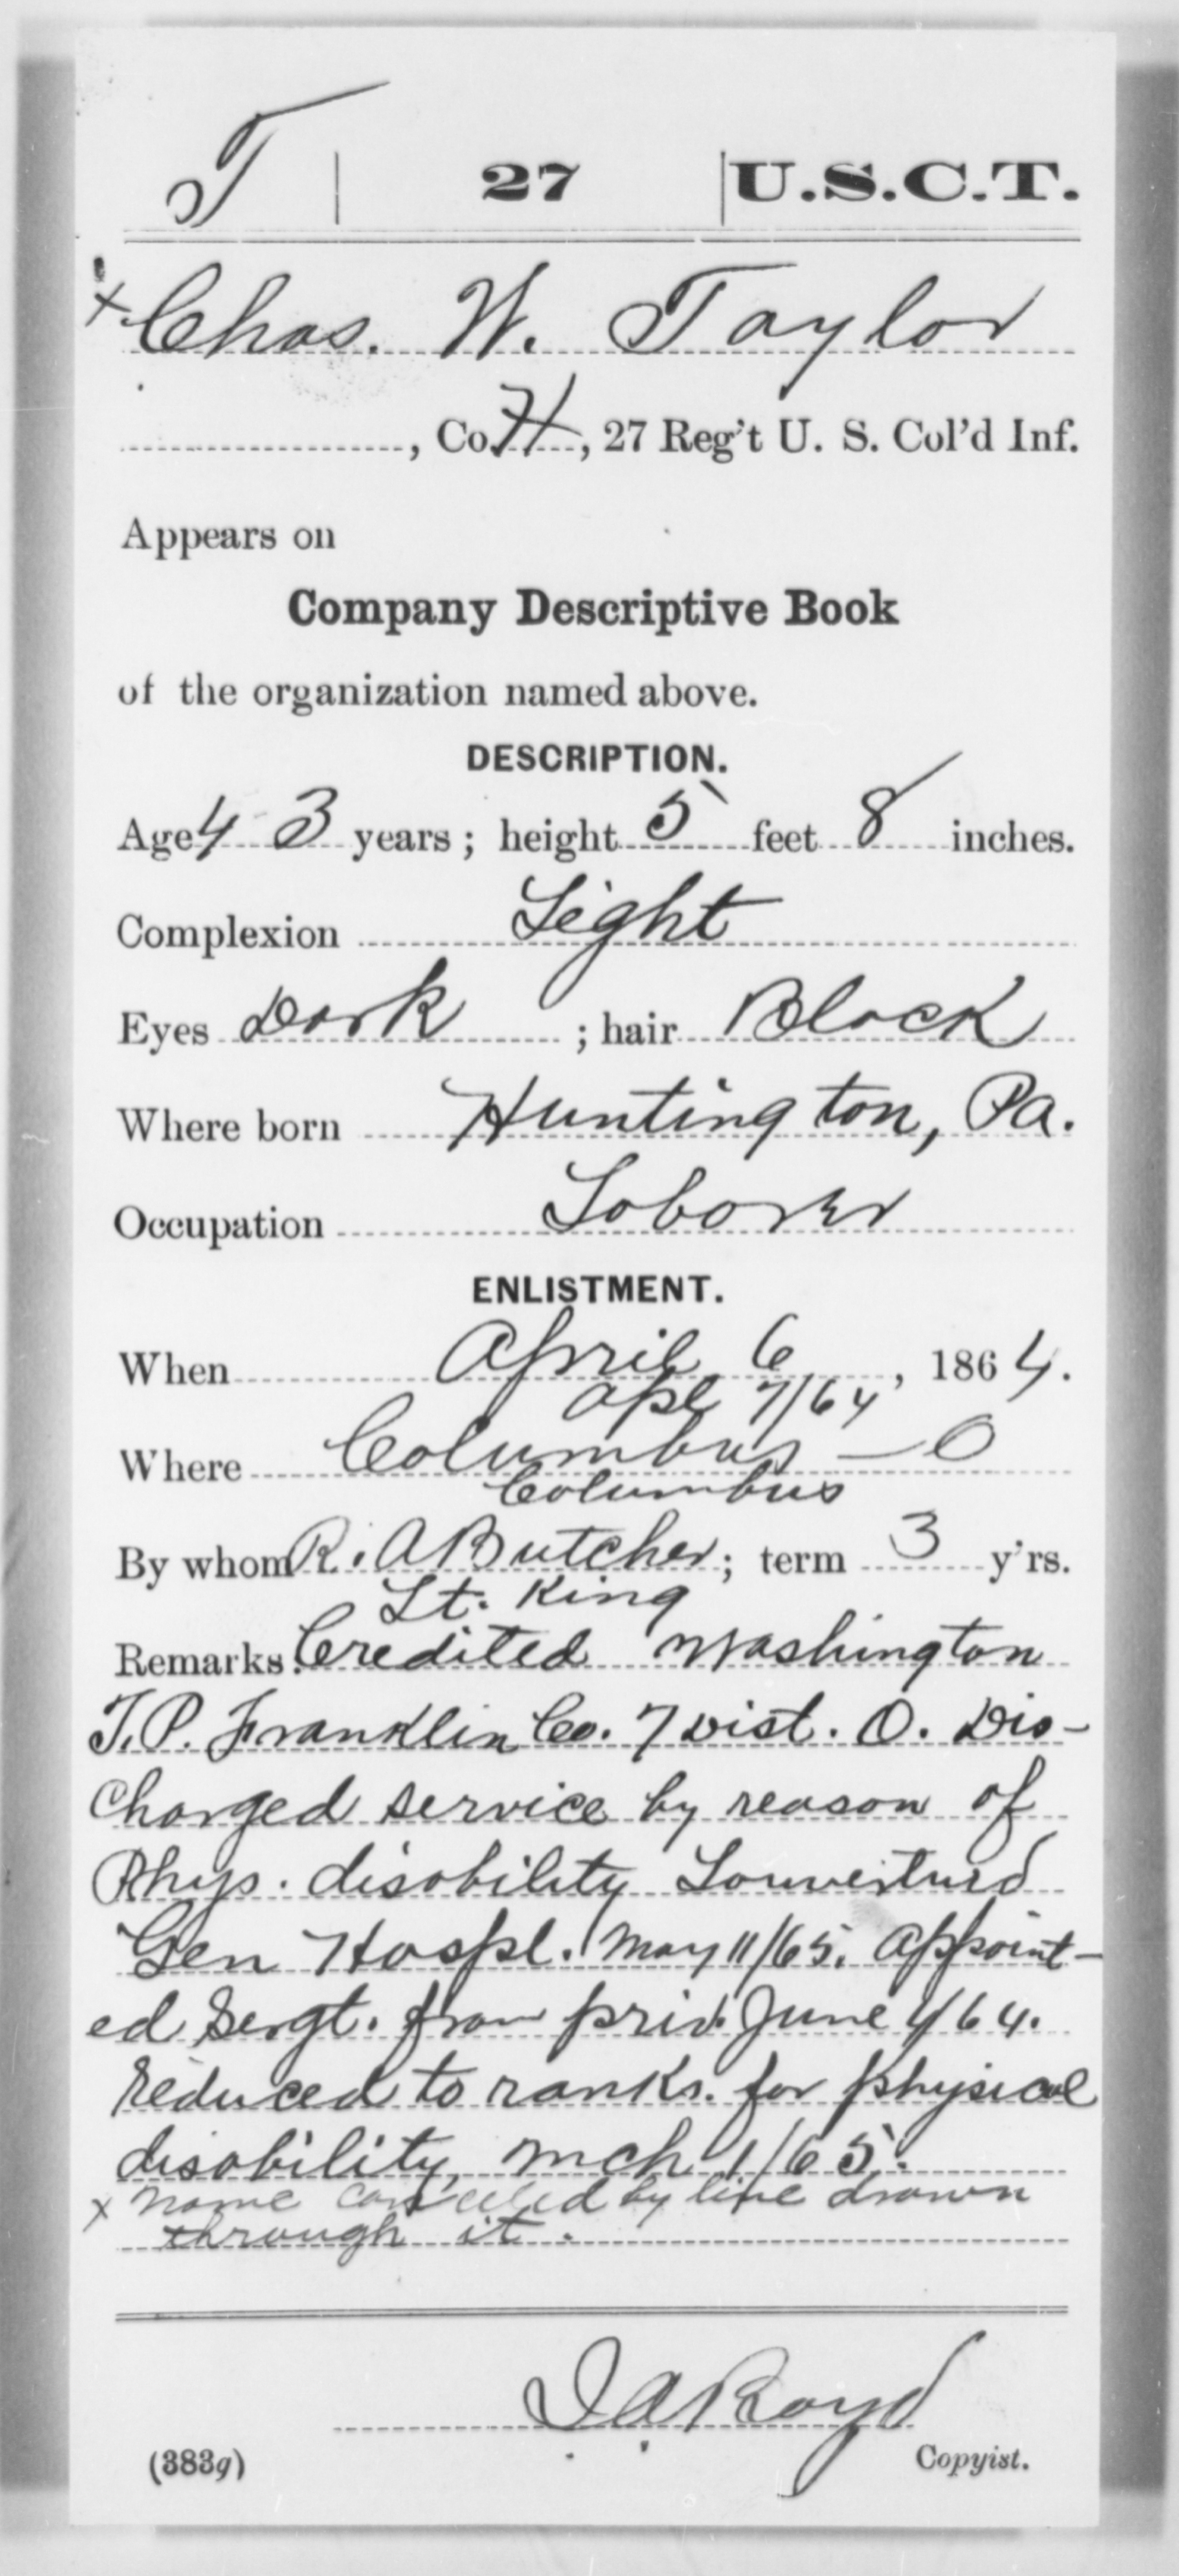 T | 27 | U.S.C.T.
x Chas. W. Taylor
, Co. H, 27 Reg't U. S. Col'd Inf.
Appears on
Company Descriptive Book
of the organization named above.
DESCRIPTION.
Age 43 years; height 5 feet 8 inches.
Complexion Light
Eyes Dark ; hair Black
Where born Huntington, Pa.
Occupation Laborer
ENLISTMENT.
When April 6, 1864.
Apl 7/64
Where Columbus - O
Columbus
By whom R. A Butcher; term 3 y'rs.
Lt. King
Remarks: Credited Washington
T.P. Franklin Co. 7 Dist. O. Dis-
charged service by reason of
Phys. disability
Gen Hospl. May 11/65. Appoint-
ed Sergt. from priv. June 4/64.
Reduced to ranks. for physical
disability, Mch 1/65.
x Name canceled by line drawn
through it.
Boyd
(383g) Copyist.